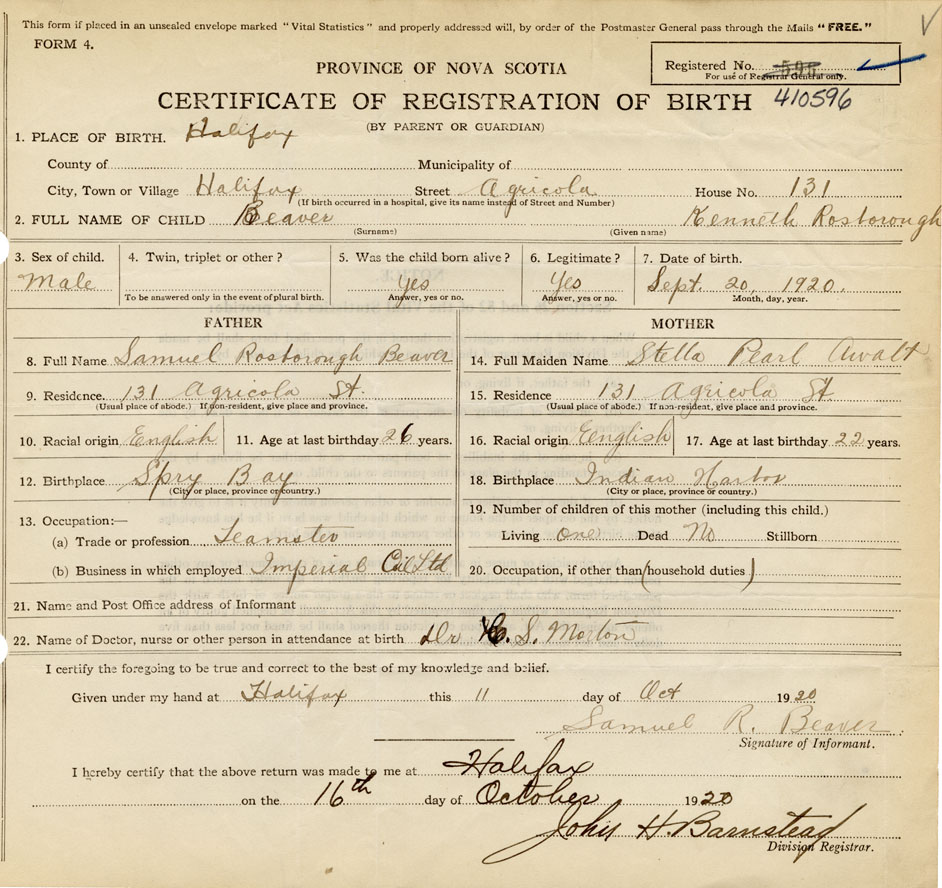 This form if placed in an unsealed envelope marked "Vital Statistics" and properly addressed will, by order of the Postmaster General pass through the Mails "FREE."
FORM 4.
Registered No. 596
For use of Registrar General only.
PROVINCE OF NOVA SCOTIA
CERTIFICATE OF REGISTRATION OF BIRTH 410596
(BY PARENT OR GUARDIAN)
1. PLACE OF BIRTH. Halifax
County of Municipality of
City, Town or Village Halifax Street Agricola House No. 131
(If birth occurred in a hospital, give its name instead of Street and Number)
2. FULL NAME OF CHILD Beaver Kenneth Rosborough
(Surname) (Given name)
3. Sex of child. 4. Twin, triplet or other ? 5. Was the child born alive ? 6. Legitimate ? 7. Date of birth.
Male yes Yes Sept. 20, 1920.
To be answered only in the event of plural birth. Answer, yes or no. Answer, yes or no. Month, day, year.
FATHER MOTHER
8. Full Name Samuel Rosborough Beaver 14. Full Maiden Name Stella Pearl Awalt
9. Residence. 131 Agricola St. 15. Residence 131 Agricola St.
(Usual place of abode.) If non-resident, give place and province. (Usual place of abode.) If non-resident, give place and province.
10. Racial origin English 11. Age at last birthday 26 years. 16. Racial origin English 17. Age at last birthday 22 years.
12. Birthplace Spry Bay 18. Birthplace Indian Harbor
(City or place, province or country.) (City or place, province or country.)
13. Occupation:— 19. Number of children of this mother (including this child.)
(a) Trade or profession Teamster Living one Dead No Stillborn
(b) Business in which employed Imperial Oil Ltd 20. Occupation, if other than (household duties)
21. Name and Post Office address of Informant
22. Name of Doctor, nurse or other person in attendance at birth Dr S. Morton
I certify the foregoing to be true and correct to the best of my knowledge and belief.
Given under my hand at Halifax this 11 day of Oct 1920
Samuel R. Beaver
Signature of Informant.
I hereby certify that the above return was made to me at Halifax
on the 16th day of October 1920
John H. Barnstead
Division Registrar.